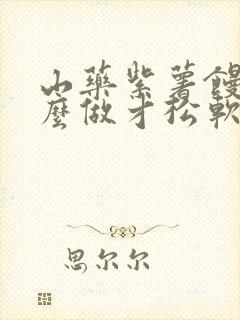 山药紫薯馒
麼做才松軟
思尔尔